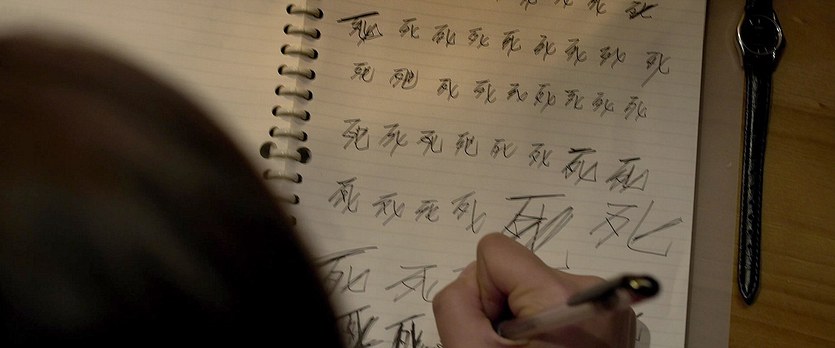 死 死 死 死
死 死 死 死 死 死 死 死 死
死 死 死 死 死 死 死 死 死
死 死 死 死 死 死 死 死
死 死 死 死 死 死
死 死
死 死